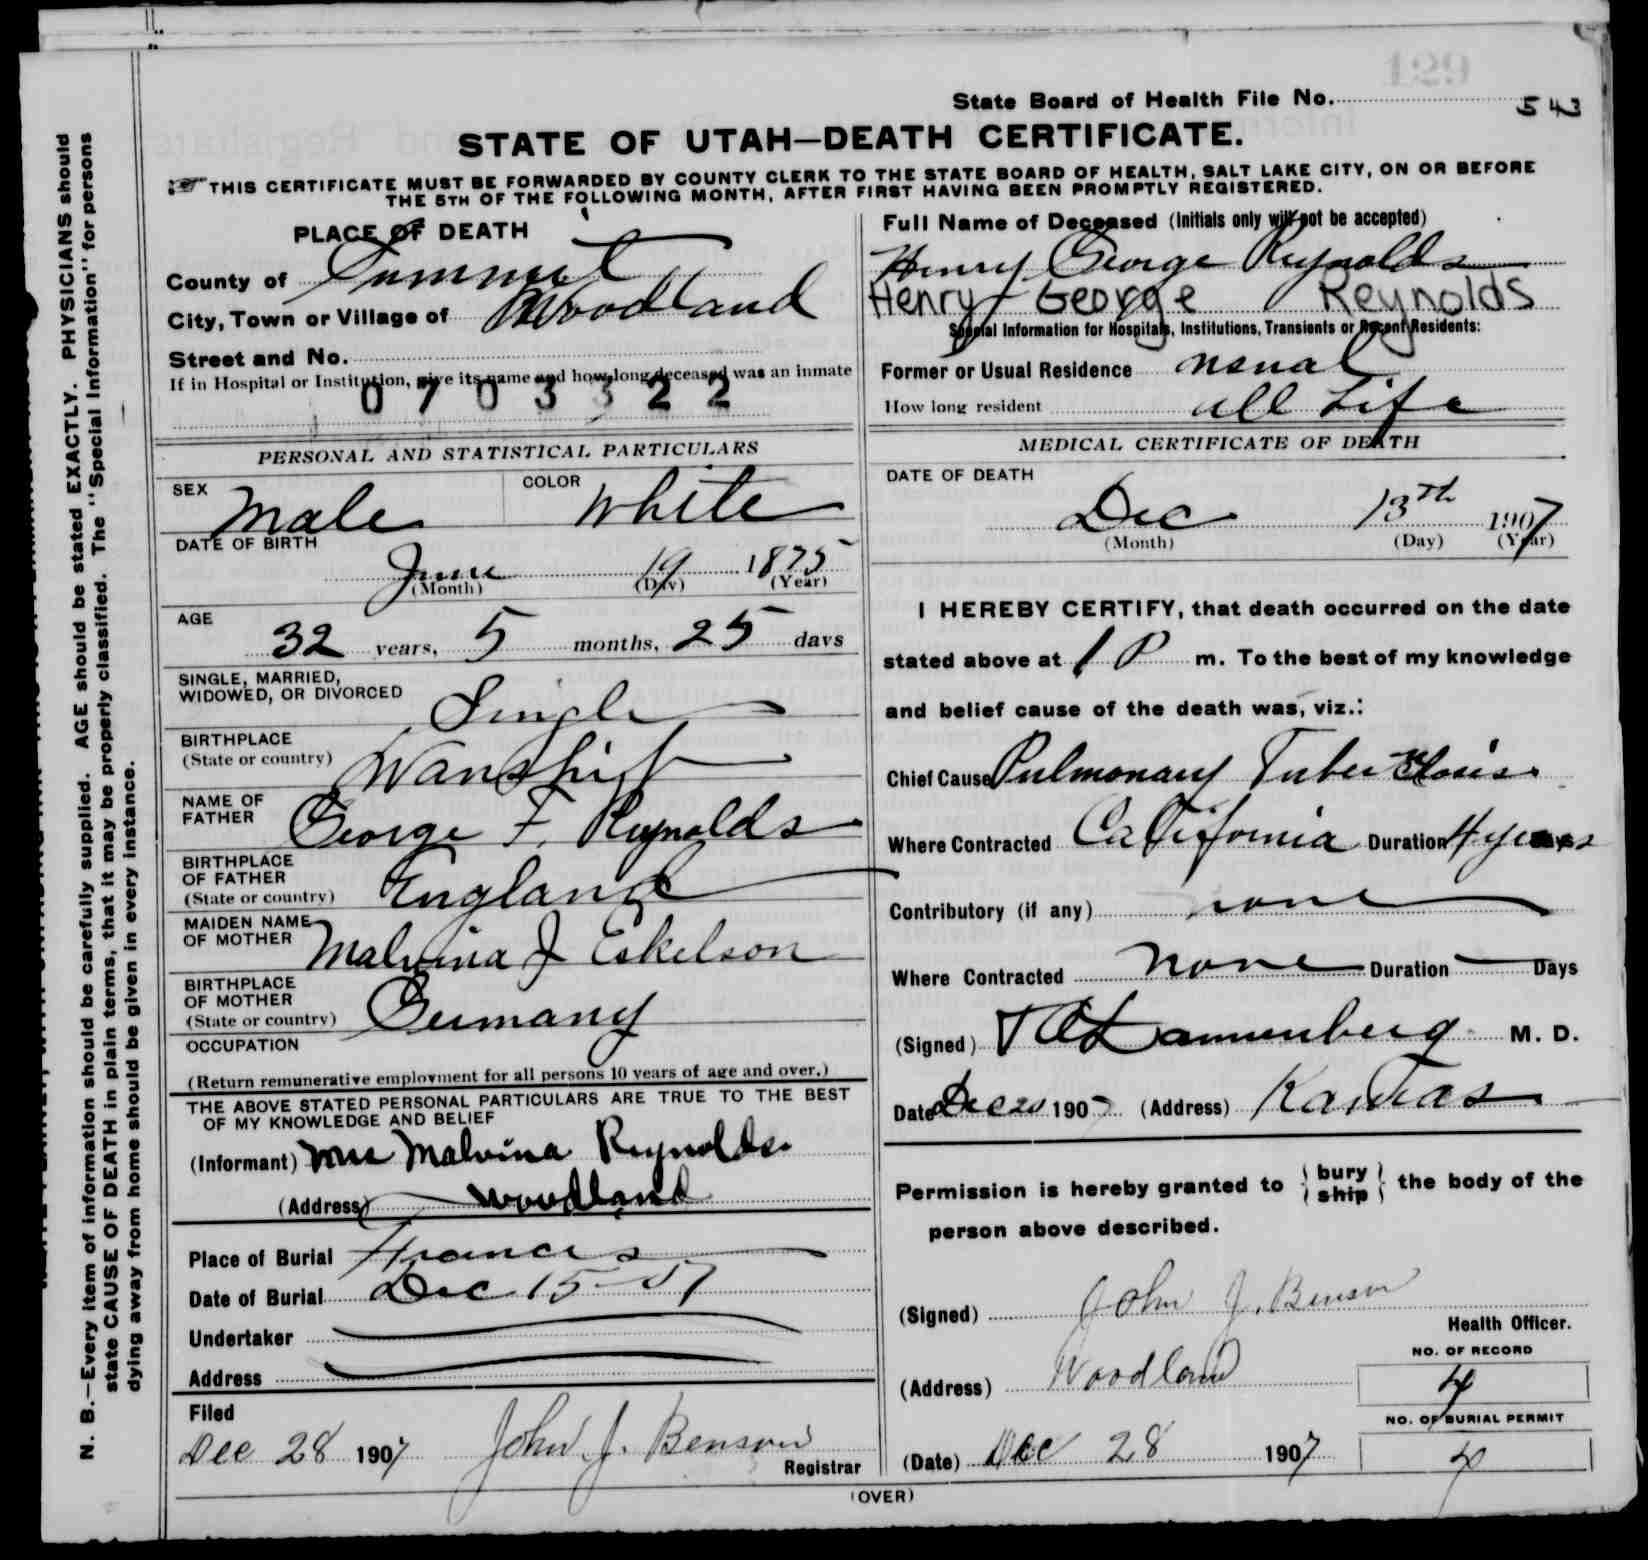 129
State Board of Health File No. 543
STATE OF UTAH—DEATH CERTIFICATE.
THIS CERTIFICATE MUST BE FORWARDED BY COUNTY CLERK TO THE STATE BOARD OF HEALTH, SALT LAKE CITY, ON OR BEFORE
THE 5TH OF THE FOLLOWING MONTH, AFTER FIRST HAVING BEEN PROMPTLY REGISTERED.
PLACE OF DEATH
County of Summit
City, Town or Village of Woodland
Street and No.
If in Hospital or Institution, give its name and how long deceased was an inmate
0703322
Full Name of Deceased (Initials only will not be accepted)
Henry George Reynolds
Henry George Reynolds
Special Information for Hospitals, Institutions, Transients or Recent Residents:
Former or Usual Residence usual
How long resident all Life
PERSONAL AND STATISTICAL PARTICULARS
SEX Male
COLOR White
DATE OF BIRTH
June 19 1875
(Month) (Day) (Year)
AGE
32 years, 5 months, 25 days
SINGLE, MARRIED,
WIDOWED, OR DIVORCED Single
BIRTHPLACE
(State or country) Wanship
NAME OF
FATHER George F. Reynolds
BIRTHPLACE
OF FATHER
(State or country) England
MAIDEN NAME
OF MOTHER Malvina J Eskelson
BIRTHPLACE
OF MOTHER
(State or country) Germany
OCCUPATION
(Return remunerative employment for all persons 10 years of age and over.)
THE ABOVE STATED PERSONAL PARTICULARS ARE TRUE TO THE BEST
OF MY KNOWLEDGE AND BELIEF
(Informant) Mrs Malvina Reynolds
(Address) Woodland
Place of Burial Francis
Date of Burial Dec 15-07
Undertaker
Address
Filed
Dec 28 1907 John J. Benson
Registrar
MEDICAL CERTIFICATE OF DEATH
DATE OF DEATH
Dec 13th 1907
(Month) (Day) (Year)
I HEREBY CERTIFY, that death occurred on the date
stated above at 1 P m. To the best of my knowledge
and belief cause of the death was, viz.:
Chief Cause Pulmonary Tuberculosis
Where Contracted California Duration 4 years
Contributory (if any) none
Where Contracted none Duration Days
(Signed) Dannenberg M. D.
Date Dec 20 1907 (Address) Kamas
Permission is hereby granted to { bury ship } the body of the
person above described.
(Signed) John J. Benson
Health Officer.
(Address) Woodland
NO. OF RECORD
4
NO. OF BURIAL PERMIT
4
(Date) Dec 28 1907
(OVER)
N. B.—Every item of information should be carefully supplied. AGE should be stated EXACTLY. PHYSICIANS should
state CAUSE OF DEATH in plain terms, that it may be properly classified. The "Special Information" for persons
dying away from home should be given in every instance.